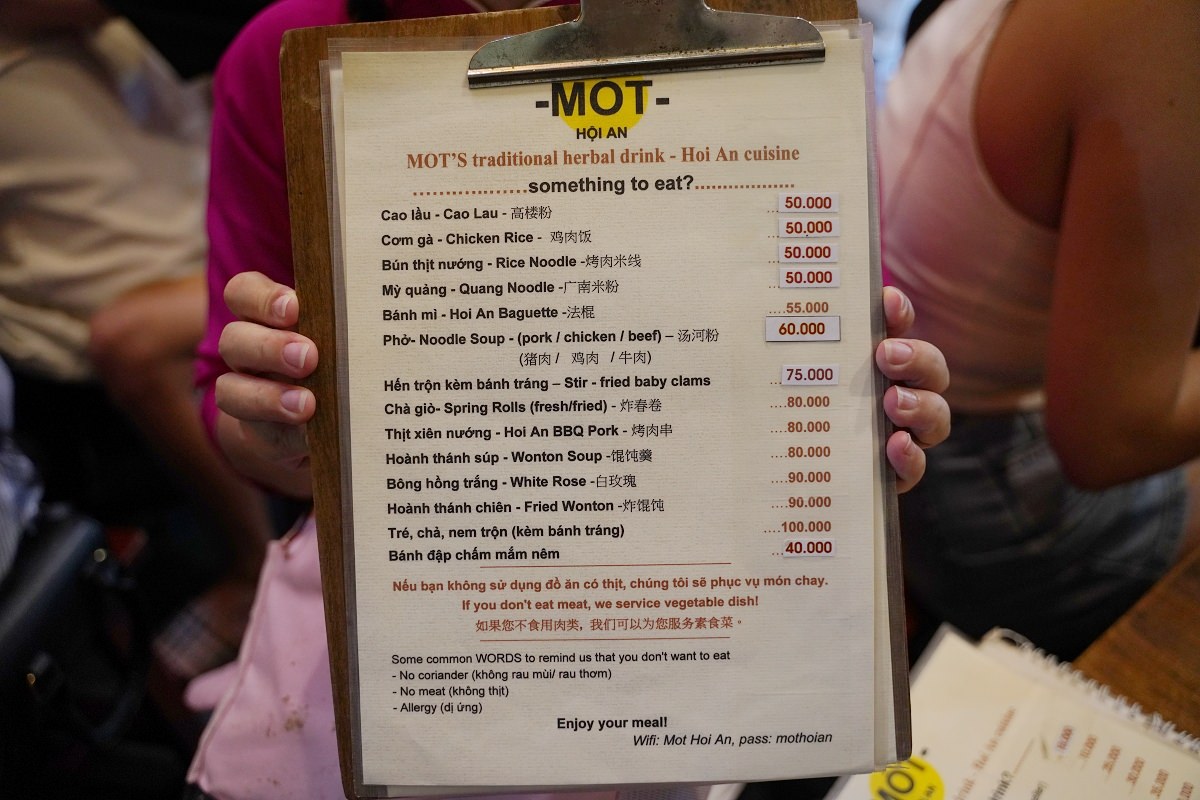 -MOT-
HỘI AN
MOT'S traditional herbal drink - Hoi An cuisine
..................something to eat?..................
Cao lầu - Cao Lau - 高楼粉 ...50.000
Cơm gà - Chicken Rice - 鸡肉饭 ...50.000
Bún thịt nướng - Rice Noodle -烤肉米线 ...50.000
Mỳ quảng - Quang Noodle -广南米粉 ...50.000
Bánh mì - Hoi An Baguette -法棍 ....55.000
Phở- Noodle Soup - (pork / chicken / beef) – 汤河粉 60.000
(猪肉 / 鸡肉 / 牛肉)
Hến trộn kèm bánh tráng – Stir - fried baby clams ...75.000
Chả giò- Spring Rolls (fresh/fried) - 炸春卷 ....80.000
Thịt xiên nướng - Hoi An BBQ Pork - 烤肉串 ....80.000
Hoành thánh súp - Wonton Soup -馄饨羹 ....80.000
Bông hồng trắng - White Rose -白玫瑰 ....90.000
Hoành thánh chiên - Fried Wonton -炸馄饨 ....90.000
Tré, chả, nem trộn (kèm bánh tráng) ....100.000
Bánh đập chấm mắm nêm ...40.000
Nếu bạn không sử dụng đồ ăn có thịt, chúng tôi sẽ phục vụ món chay.
If you don't eat meat, we service vegetable dish!
如果您不食用肉类, 我们可以为您服务素食菜。
Some common WORDS to remind us that you don't want to eat
- No coriander (không rau mùi/ rau thơm)
- No meat (không thịt)
- Allergy (dị ứng)
Enjoy your meal!
Wifi: Mot Hoi An, pass: mothoian
MOT